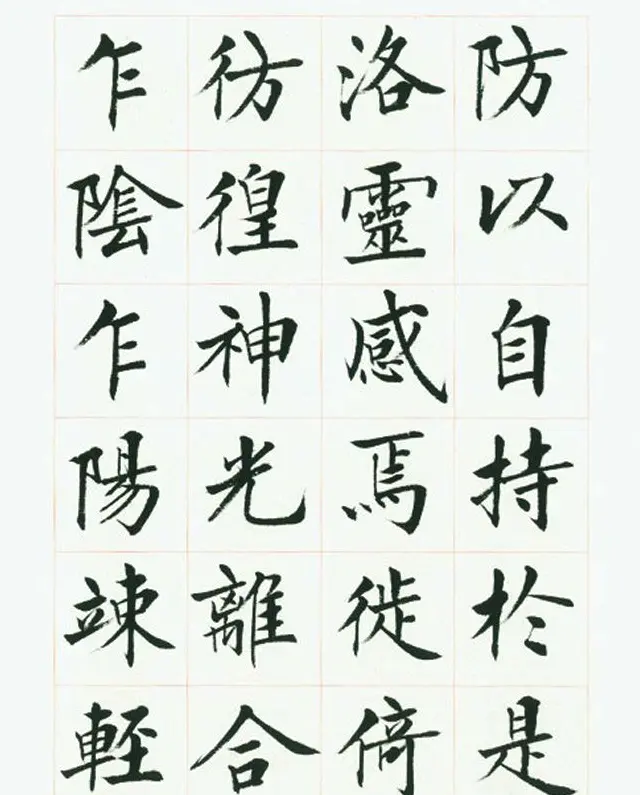 防以自持於是
洛靈感焉徙倚
彷徨神光離合
乍陰乍陽竦輕